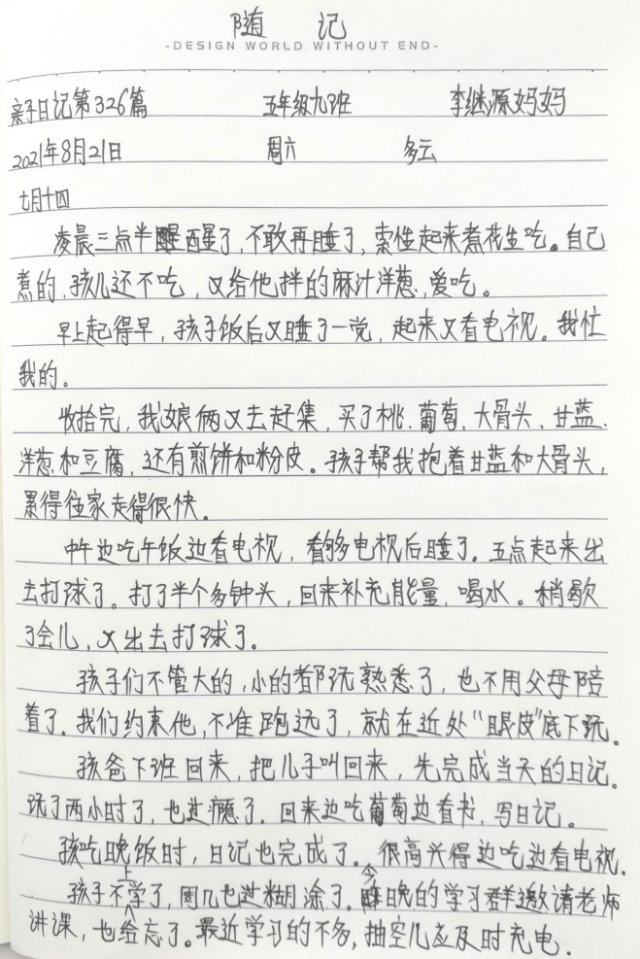 随记
-DESIGN WORLD WITHOUT END-
亲子日记第326篇 五年级九班 李继源妈妈
2021年8月21日 周六 多云
七月十四
凌晨三点半醒了，不敢再睡了，索性起来煮花生吃。自己
煮的，孩儿还不吃，又给他拌的麻汁洋葱，爱吃。
早上起得早，孩子饭后又睡了一觉，起来又看电视。我忙
我的。
收拾完，我娘俩又去赶集，买了桃、葡萄、大骨头、甘蓝、
洋葱和豆腐，还有煎饼和粉皮。孩子帮我抱着甘蓝和大骨头，
累得往家走得很快。
中午边吃午饭边看电视，看够电视后睡了。五点起来出
去打球了。打了半个多钟头，回来补充能量，喝水。稍歇
了会儿，又出去打球了。
孩子们不管大的，小的都玩熟悉了，也不用父母陪
着了。我们约束他，不准跑远了，就在近处“眼皮”底下玩。
孩爸下班回来，把儿子叫回来，先完成当天的日记。
玩了两小时了，也过瘾了。回来边吃葡萄边看书，写日记。
孩吃晚饭时，日记也完成了。很高兴得边吃边看电视。
孩子不上学了，周几也过糊涂了。今晚的学习群邀请老师
讲课，也给忘了。最近学习的不多，抽空儿应及时充电。